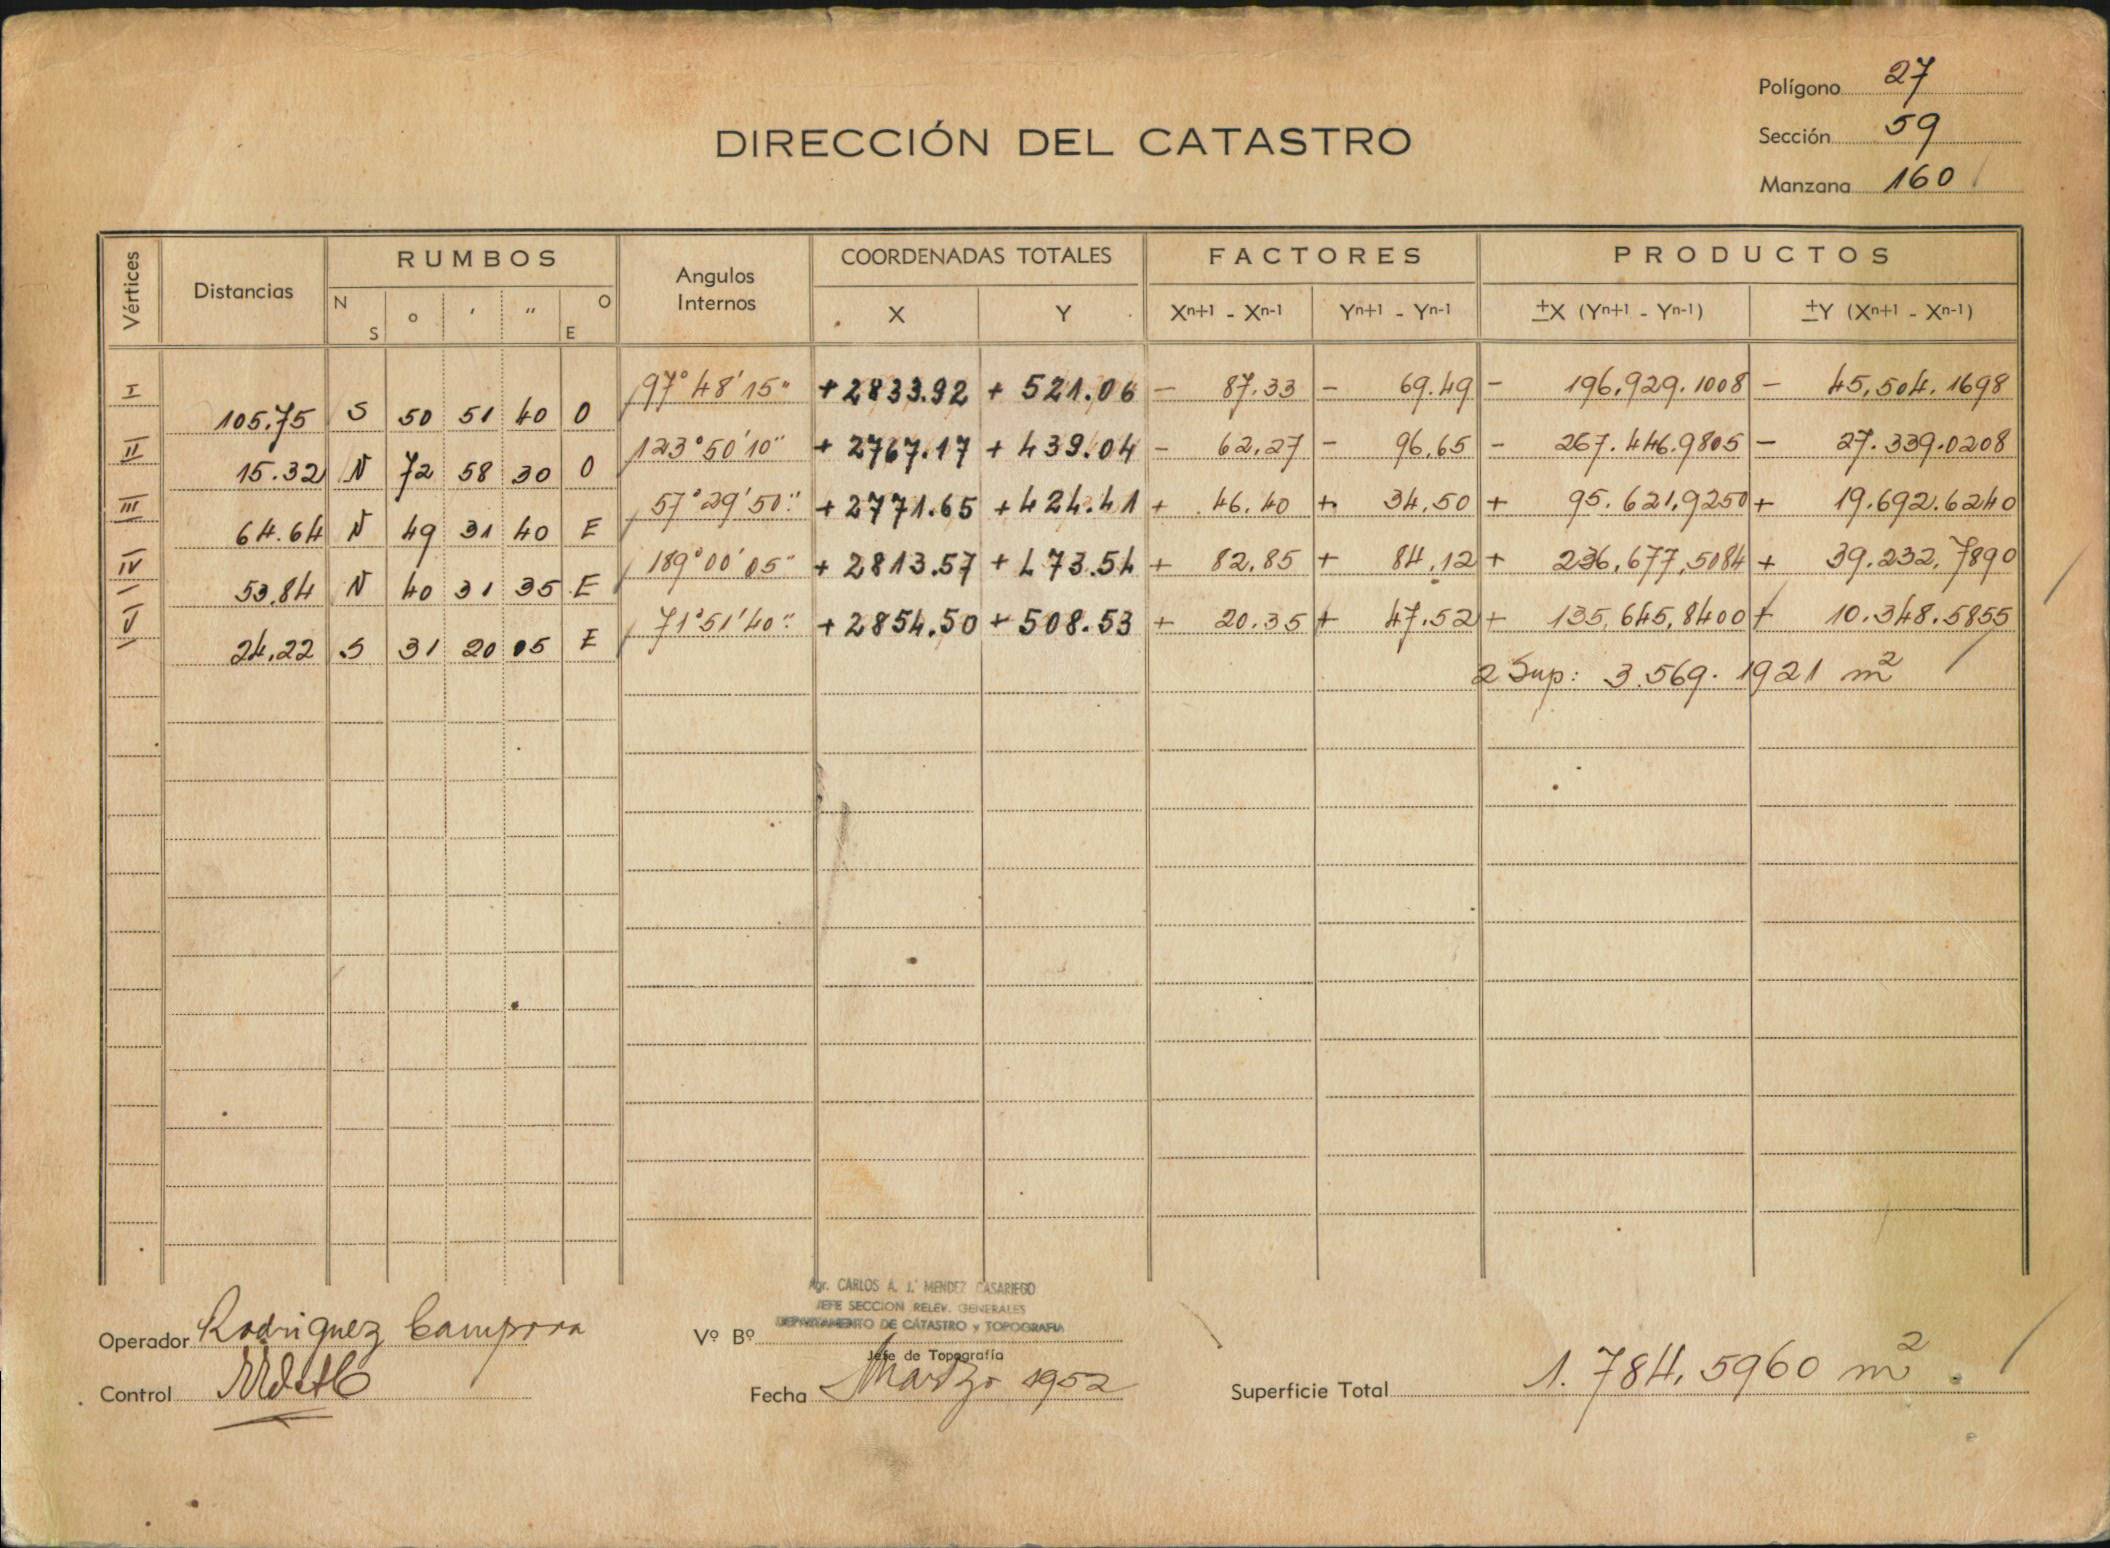 Polígono 27
DIRECCIÓN DEL CATASTRO
Sección 59
Manzana 160
Vértices Distancias RUMBOS Angulos Internos COORDENADAS TOTALES FACTORES PRODUCTOS
N S ° ' " O E X Y Xn+1 - Xn-1 Yn+1 - Yn-1 ±X (Yn+1 - Yn-1) ±Y (Xn+1 - Xn-1)
I 97°48'15" +2833.92 + 521.06 - 87.33 - 69.49 - 196,929.1008 - 45,504.1698
105.75 S 50 51 40 O
II 123°50'10" + 2767.17 + 439.04 - 62.27 - 96.65 - 267.446.9805 - 27.339.0208
15.32 N 72 58 30 O
III 57°29'50" + 2771.65 + 424.41 + 46.40 + 34.50 + 95.621,9250 + 19.692.6240
64.64 N 49 31 40 E
IV 189°00'05" + 2813.57 + 473.54 + 82.85 + 84.12 + 236,677,5084 + 39.232,7890
53.84 N 40 31 35 E
V 71°51'40" + 2854.50 + 508.53 + 20.35 + 47.52 + 135,645,8400 + 10.348.5855
24.22 S 31 20 05 E
2 Sup: 3.569.1921 m²
Agr. CARLOS A. J. MENDEZ CASARIEGO
JEFE SECCION RELEV. GENERALES
DEPARTAMENTO DE CATASTRO y TOPOGRAFIA
Operador Rodriguez Campora Vº Bº
Jefe de Topografía
Control Fecha Marzo 1952 Superficie Total 1.784,5960 m²